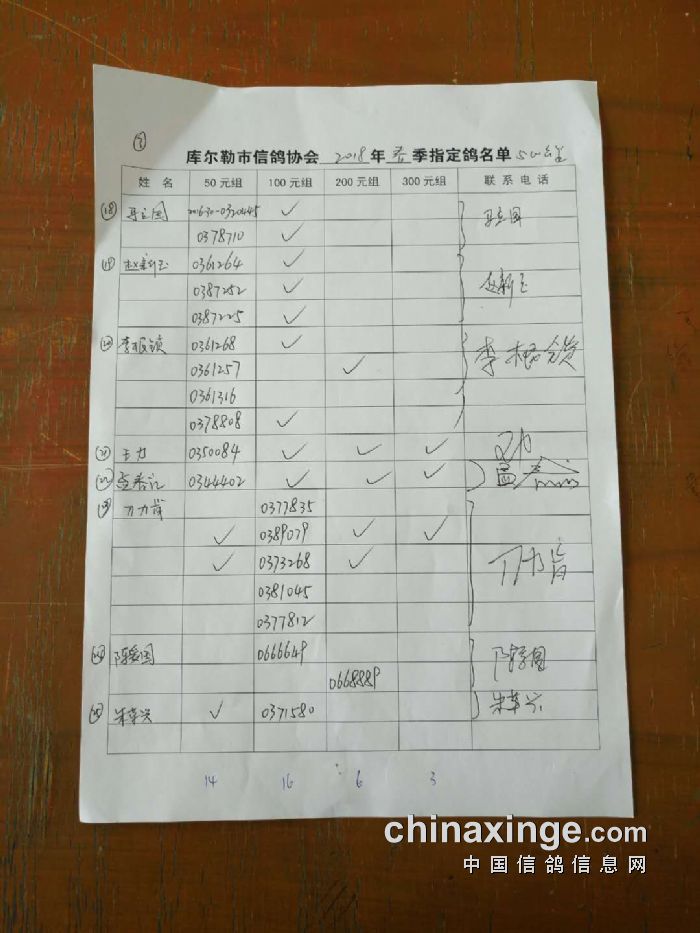 ③
库尔勒市信鸽协会 2018 年 春 季指定鸽名单 500公里
姓 名 50元组 100元组 200元组 300元组 联系电话
⑱ 马立国 201630-0320445 ✓ 马立国
0378710 ✓
⑲ 赵新玉 0361264 ✓ 赵新玉
0387252 ✓
0387225 ✓
⑳ 李根锁 0361268 ✓ 李根锁
0361257 ✓
0361316
0378808 ✓
㉑ 王力 0350084 ✓ ✓ ✓
㉒ 0344402 ✓ ✓ ✓
㉓ 0377835
✓ 0389079 ✓ ✓
✓ 0373268 ✓
0381045
0377812
㉔ 陈爱国 0666649 陈爱国
0668889
㉕ 朱革兴 ✓ 0371580 朱革兴
14 16 6 3
chinaxinge.com
中国信鸽信息网